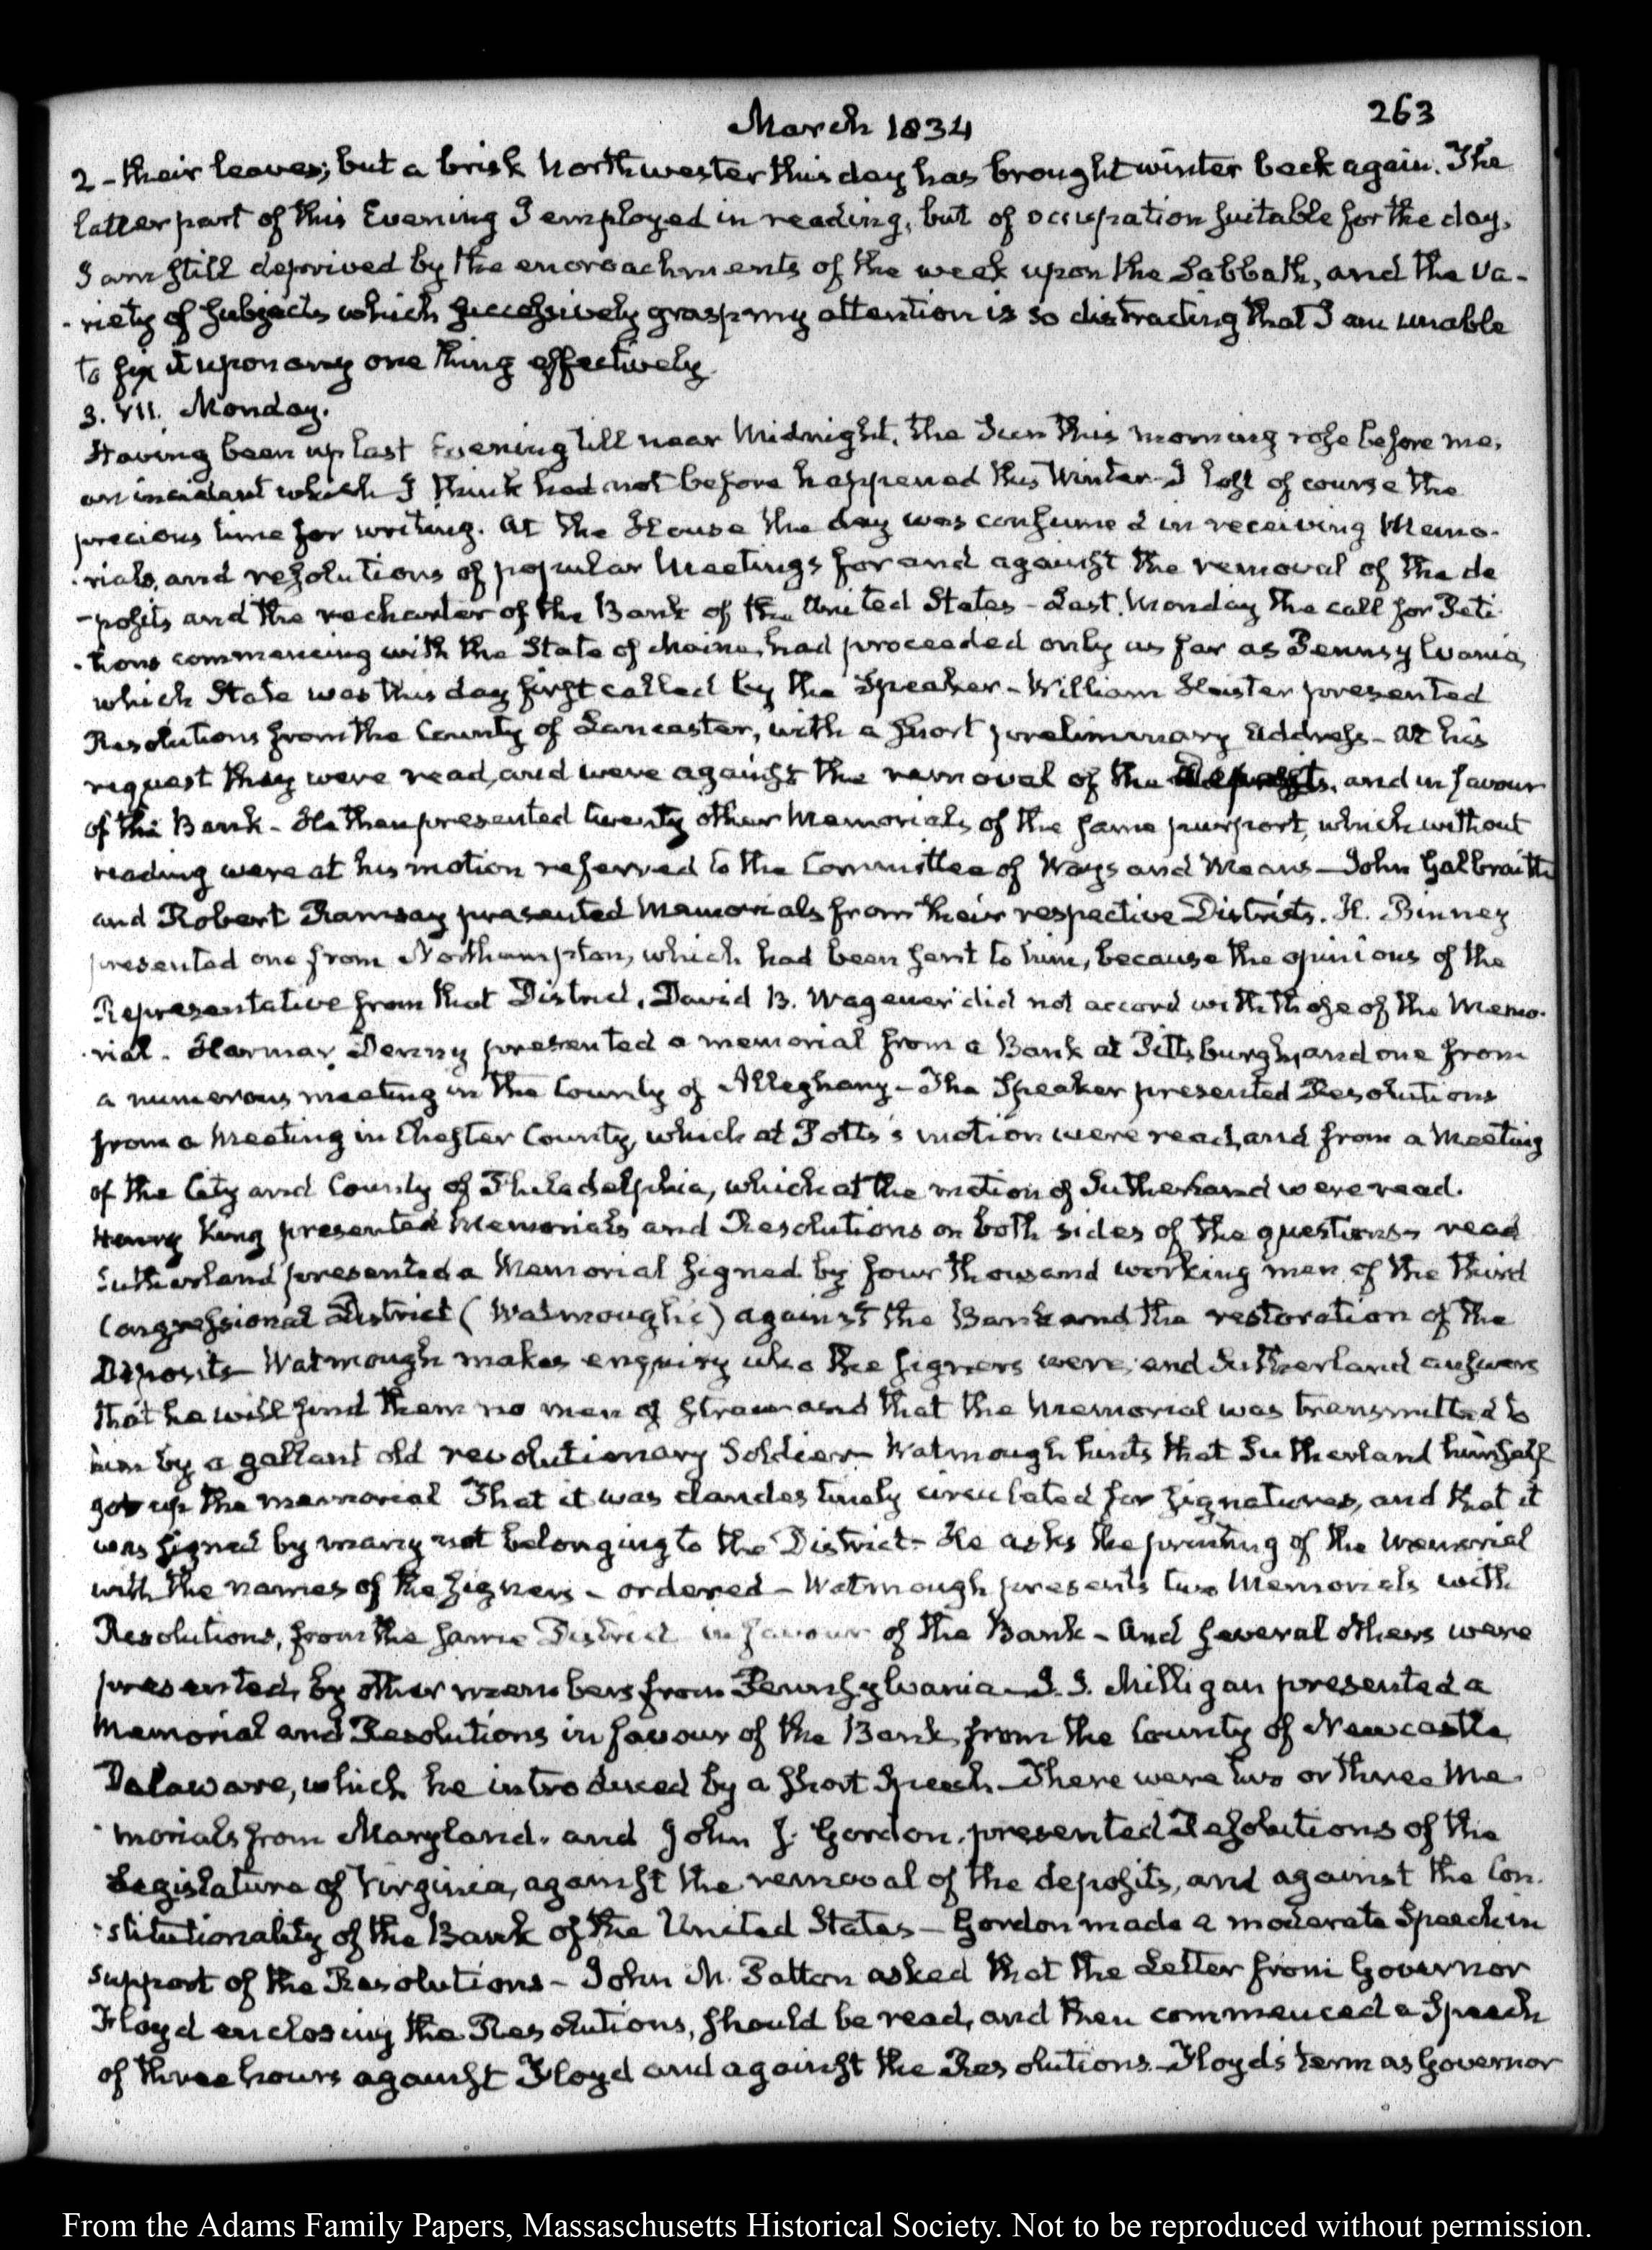 March 1834
263
2 - their leaves; but a brisk Northwester this day has brought winter back again. The
latter part of this Evening I employed in reading, but of occupation suitable for the day,
I am still deprived by the encroachments of the week upon the Sabbath, and the va-
-riety of subjects which successively grasp my attention is so distracting that I am unable
to fix it upon any one thing effectively
3. VII. Monday.
Having been up last Evening till near Midnight, the Sun this morning rose before me,
an incident which I think had not before happened this Winter - I lost of course the
precious time for writing. At the House the day was consumed in receiving Memo-
-rials, and resolutions of popular Meetings for and against the removal of the de
-posits and the recharter of the Bank of the United States - Last Monday the call for Peti
-tions commencing with the State of Maine, had proceeded only as far as Pennsylvania,
which State was this day first called by the Speaker - William Heister presented
Resolutions from the County of Lancaster, with a short preliminary address - At his
request they were read, and were against the removal of the Deposits, and in favour
of the Bank - He then presented twenty other Memorials of the same purport, which without
reading were at his motion referred to the Committee of Ways and Means - John Galbraith
and Robert Ramsay presented Memorials from their respective Districts. H. Binney
presented one from Northampton, which had been sent to him, because the opinions of the
Representative from that District, David B. Wagener did not accord with those of the Memo-
-rial. Harmar Denny presented a memorial from a Bank at Pittsburgh, and one from
a numerous meeting in the County of Alleghany - The Speaker presented Resolutions
from a Meeting in Chester County, which at Potts's motion were read, and from a Meeting
of the City and County of Philadelphia, which at the motion of Sutherland were read.
Henry King presented Memorials and Resolutions on both sides of the questions - read
Sutherland presented a Memorial signed by four thousand working men of the third
Congressional District (Watmough's) against the Bank and the restoration of the
Deposits - Watmough makes enquiry who the signers were, and Sutherland answers
that he will find them no men of straw and that the Memorial was transmitted to
him by a gallant old revolutionary Soldier - Watmough hints that Sutherland himself
got up the memorial That it was clandestinely circulated for signatures, and that it
was signed by many not belonging to the District - He asks the printing of the Memorial
with the names of the signers - ordered - Watmough presents two Memorials with
Resolutions, from the same District in favour of the Bank - And several others were
presented, by other members from Pennsylvania - J. J. Milligan presented a
Memorial and Resolutions in favour of the Bank, from the County of Newcastle
Delaware, which he introduced by a short Speech - There were two or three Me-
-morials from Maryland, and John J. Gordon, presented Resolutions of the
Legislature of Virginia, against the removal of the deposits, and against the Con-
-stitutionality of the Bank of the United States - Gordon made a moderate Speech in
support of the Resolutions - John M. Patton asked that the Letter from Governor
Floyd enclosing the Resolutions, should be read, and then commenced a Speech
of three hours against Floyd and against the Resolutions - Floyd's term as Governor
From the Adams Family Papers, Massachusetts Historical Society. Not to be reproduced without permission.